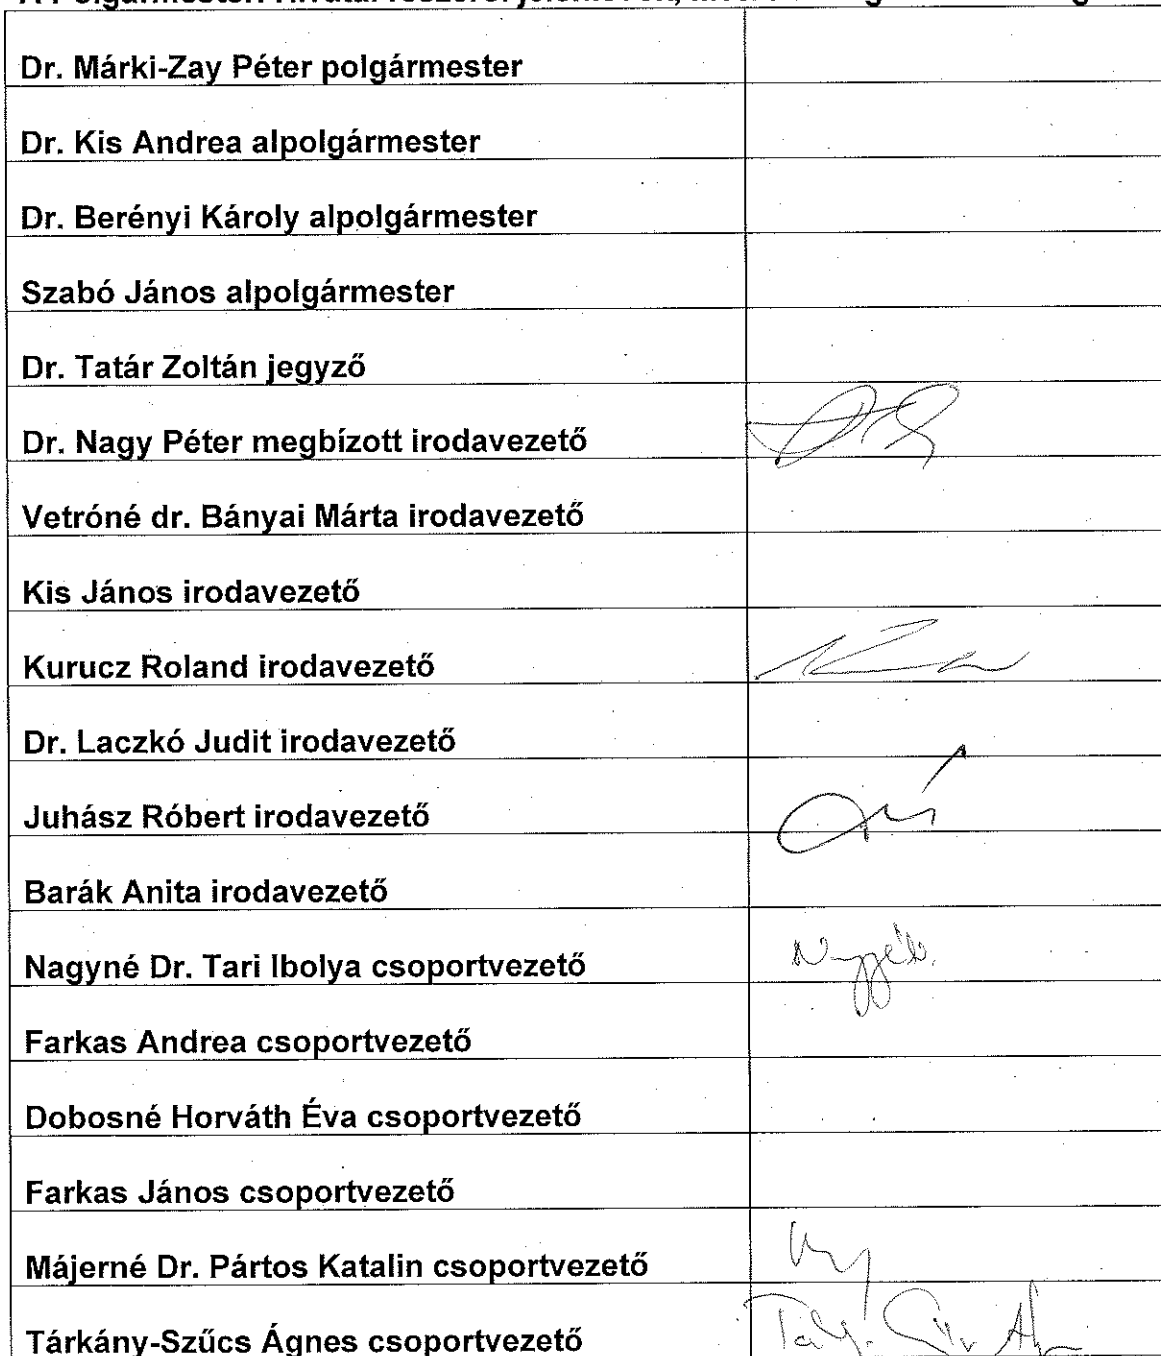 Dr. Márki-Zay Péter polgármester
Dr. Kis Andrea alpolgármester
Dr. Berényi Károly alpolgármester
Szabó János alpolgármester
Dr. Tatár Zoltán jegyző
Dr. Nagy Péter megbízott irodavezető
Vetróné dr. Bányai Márta irodavezető
Kis János irodavezető
Kurucz Roland irodavezető
Dr. Laczkó Judit irodavezető
Juhász Róbert irodavezető
Barák Anita irodavezető
Nagyné Dr. Tari Ibolya csoportvezető
Farkas Andrea csoportvezető
Dobosné Horváth Éva csoportvezető
Farkas János csoportvezető
Májerné Dr. Pártos Katalin csoportvezető
Tárkány-Szűcs Ágnes csoportvezető